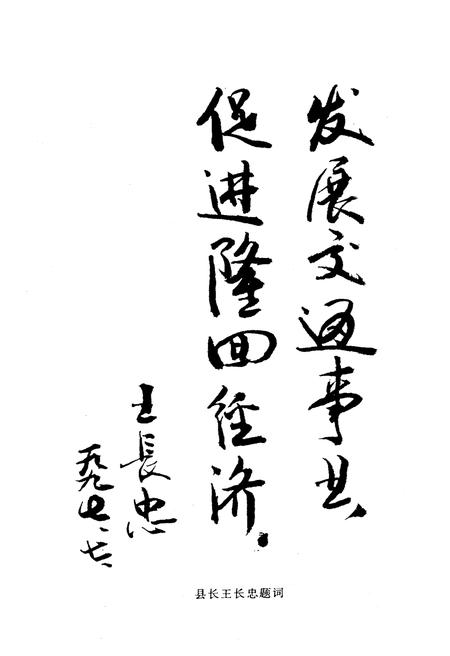 发展交通事业
促进隆回经济。
王長忠
一九九七、七、
县长王长忠题词